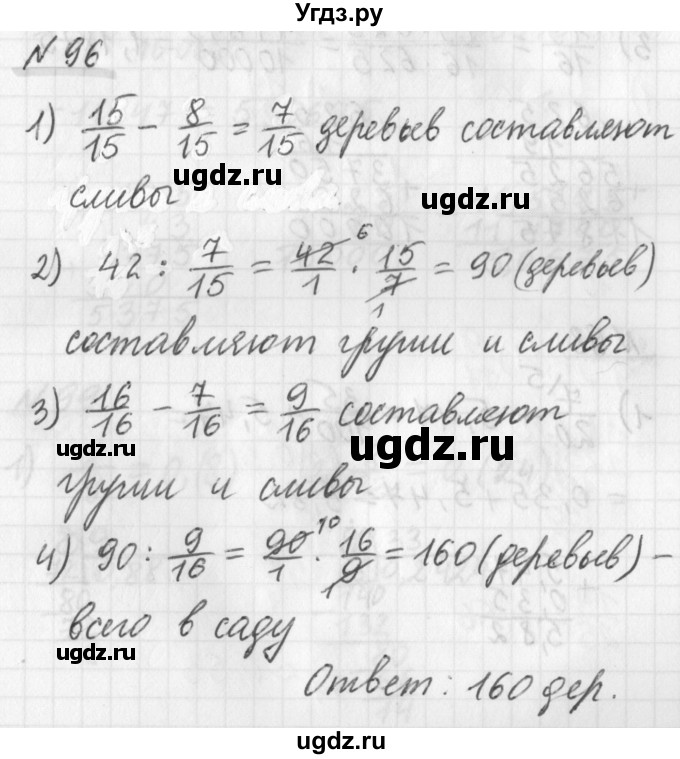 Угдз.ру
№ 96
1) 15/15 - 8/15 = 7/15 деревьев составляют
ugdz.ru ugdz.ru
сливы
2) 42 : 7/15 = 42/1 6 · 15/7 1 = 90 (деревьев)
составляют груши и сливы
3) 16/16 - 7/16 = 9/16 составляют
ugdz.ru ugdz.ru
груши и сливы
4) 90 : 9/16 = 90/1 10 · 16/9 1 = 160 (деревьев) -
всего в саду
ugdz.ru
Ответ: 160 дер.
ugdz.ru